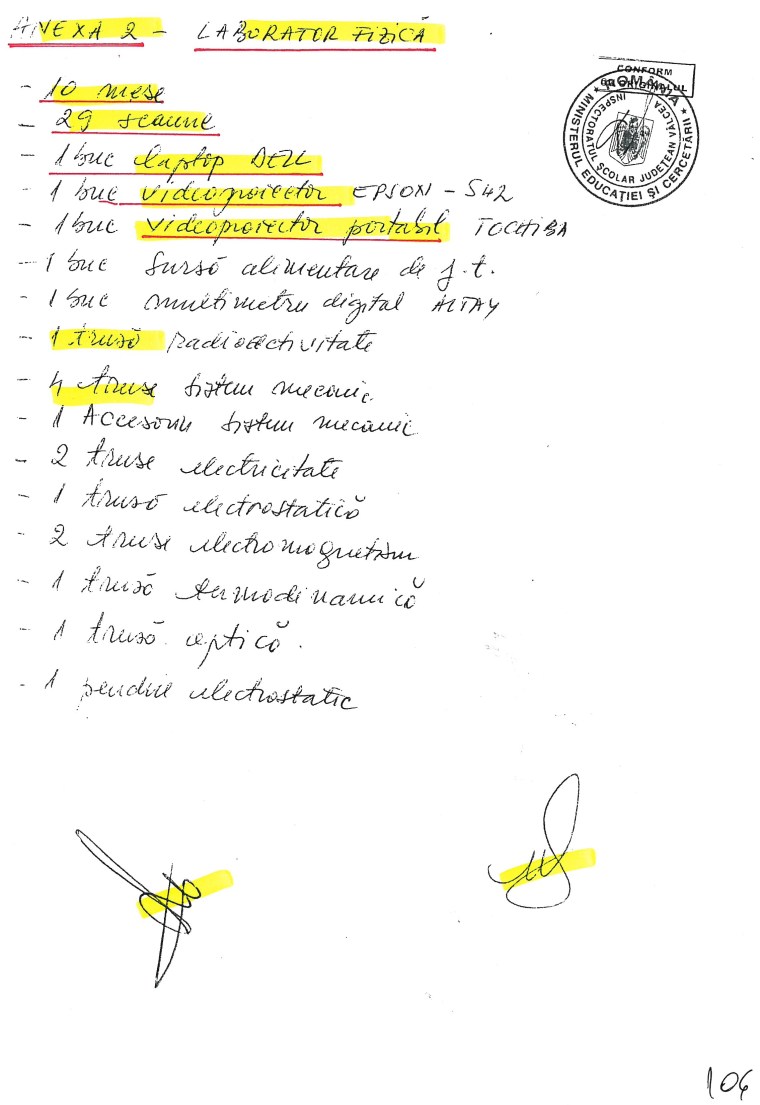 ANEXA 2 - LABORATOR FIZICĂ
CONFORM
CU ORIGINALUL
ROMÂNIA
MINISTERUL EDUCAȚIEI ȘI CERCETĂRII
INSPECTORATUL ȘCOLAR JUDEȚEAN VÂLCEA
- 10 mese
- 29 scaune
- 1 buc laptop DELL
- 1 buc videoproiector EPSON - S42
- 1 buc videoproiector portabil TOCHIBA
- 1 buc sursă alimentare de j.t.
- 1 buc multimetru digital ALTAY
- 1 trusă radioactivitate
- 4 truse sistem mecanic
- 1 Accesorii sistem mecanic
- 2 truse electricitate
- 1 trusă electrostatică
- 2 truse electromagnetism
- 1 trusă termodinamică
- 1 trusă optică.
- 1 pendul electrostatic
106